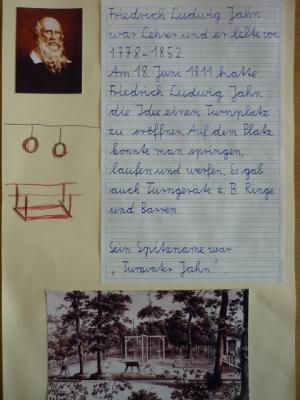 Friedrich Ludwig Jahn
war Lehrer und er lebte von
1778-1852.
Am 18. Juni 1811 hatte
Friedrich Ludwig Jahn
die Idee einen Turnplatz
zu eröffnen. Auf dem Platz
konnte man springen,
laufen und werfen. Es gab
auch Turngeräte z. B. Ringe
und Barren.
Sein Spitzname war
„Turnvater Jahn“.